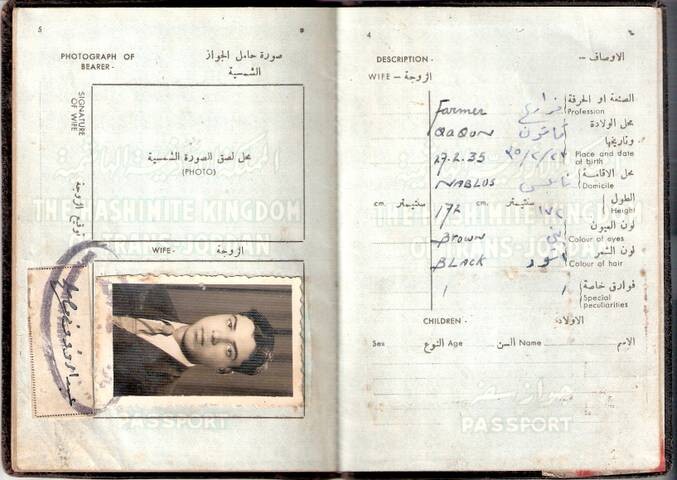 5
PHOTOGRAPH OF
BEARER -
صورة حامل الجواز
الشمسية
SIGNATURE
OF WIFE
توقيع الزوجة
محل لصق الصورة الشمسية
(PHOTO)
THE HASHIMITE KINGDOM
OF TRANS-JORDAN
WIFE - الزوجة
4
DESCRIPTION - الاوصاف -
WIFE - الزوجة -
Farmer الصنعة او الحرفة
Profession
QAQUN قاقون محل الولادة
وتاريخها
27.2.35 ٣٥/٢/٢٧ Place and date
of birth
NABLUS نابلس محل الاقامة
Domicile
cm. سنتيمتر 172 cm. سنتيمتر ١٧٢ الطول
Height
Brown بني لون العيون
Colour of eyes
BLACK اسود لون الشعر
Colour of hair
/ / فوارق خاصة
Special
peculiarities
CHILDREN - الاولاد -
Sex النوع Age السن Name الاسم
THE HASHIMITE KINGDOM
OF TRANS-JORDAN
جواز سفر
PASSPORT
PASSPORT